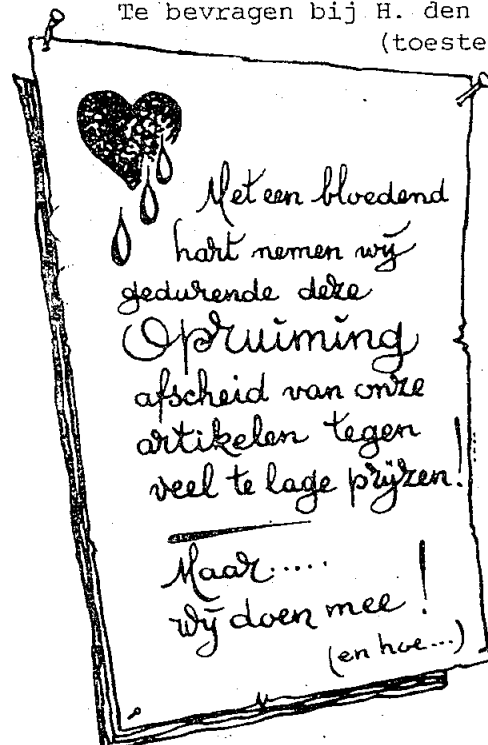 Te bevragen bij H. den
(toeste
Met een bloedend
hart nemen wij
gedurende deze
Opruiming
afscheid van onze
artikelen tegen
veel te lage prijzen!
Maar.....
wij doen mee!
(en hoe...)